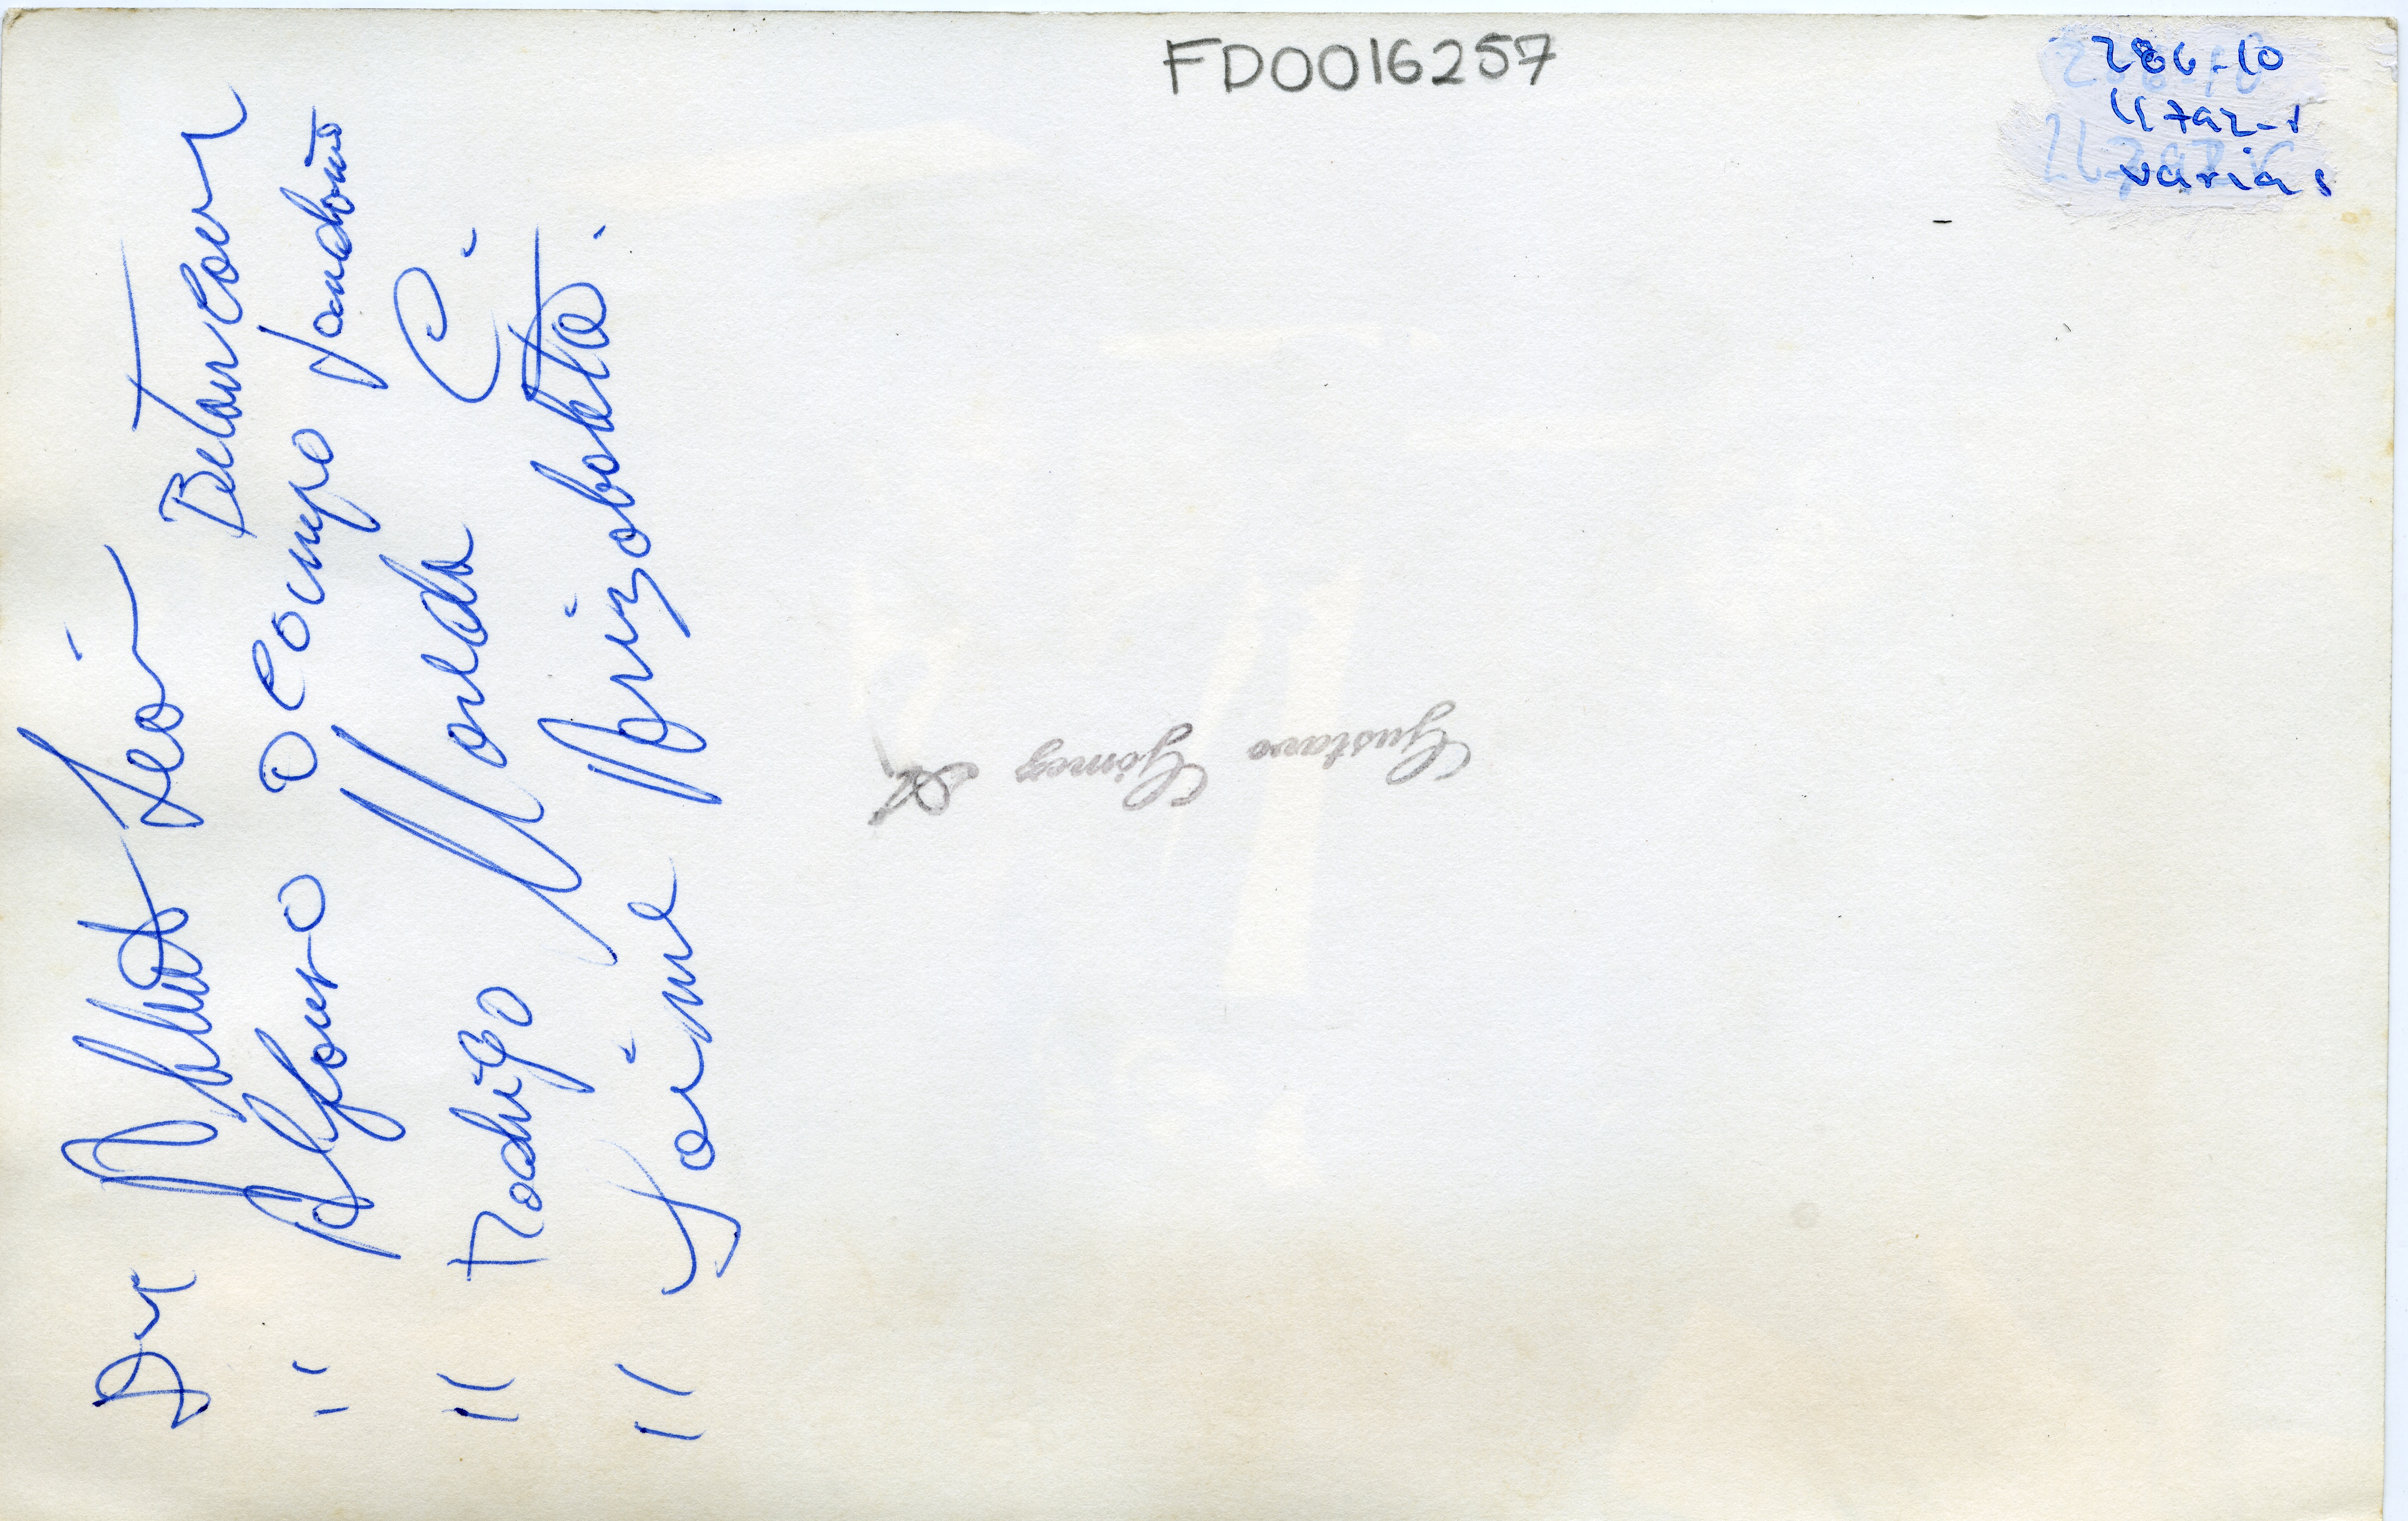 FD0016257
286-10
11792-1
varias
Dr León Betancour
" Alfonso Ocampo Londoño
" Rodrigo Noreda C.
" Jaime Arizabaleta.
Gustavo Gómez A